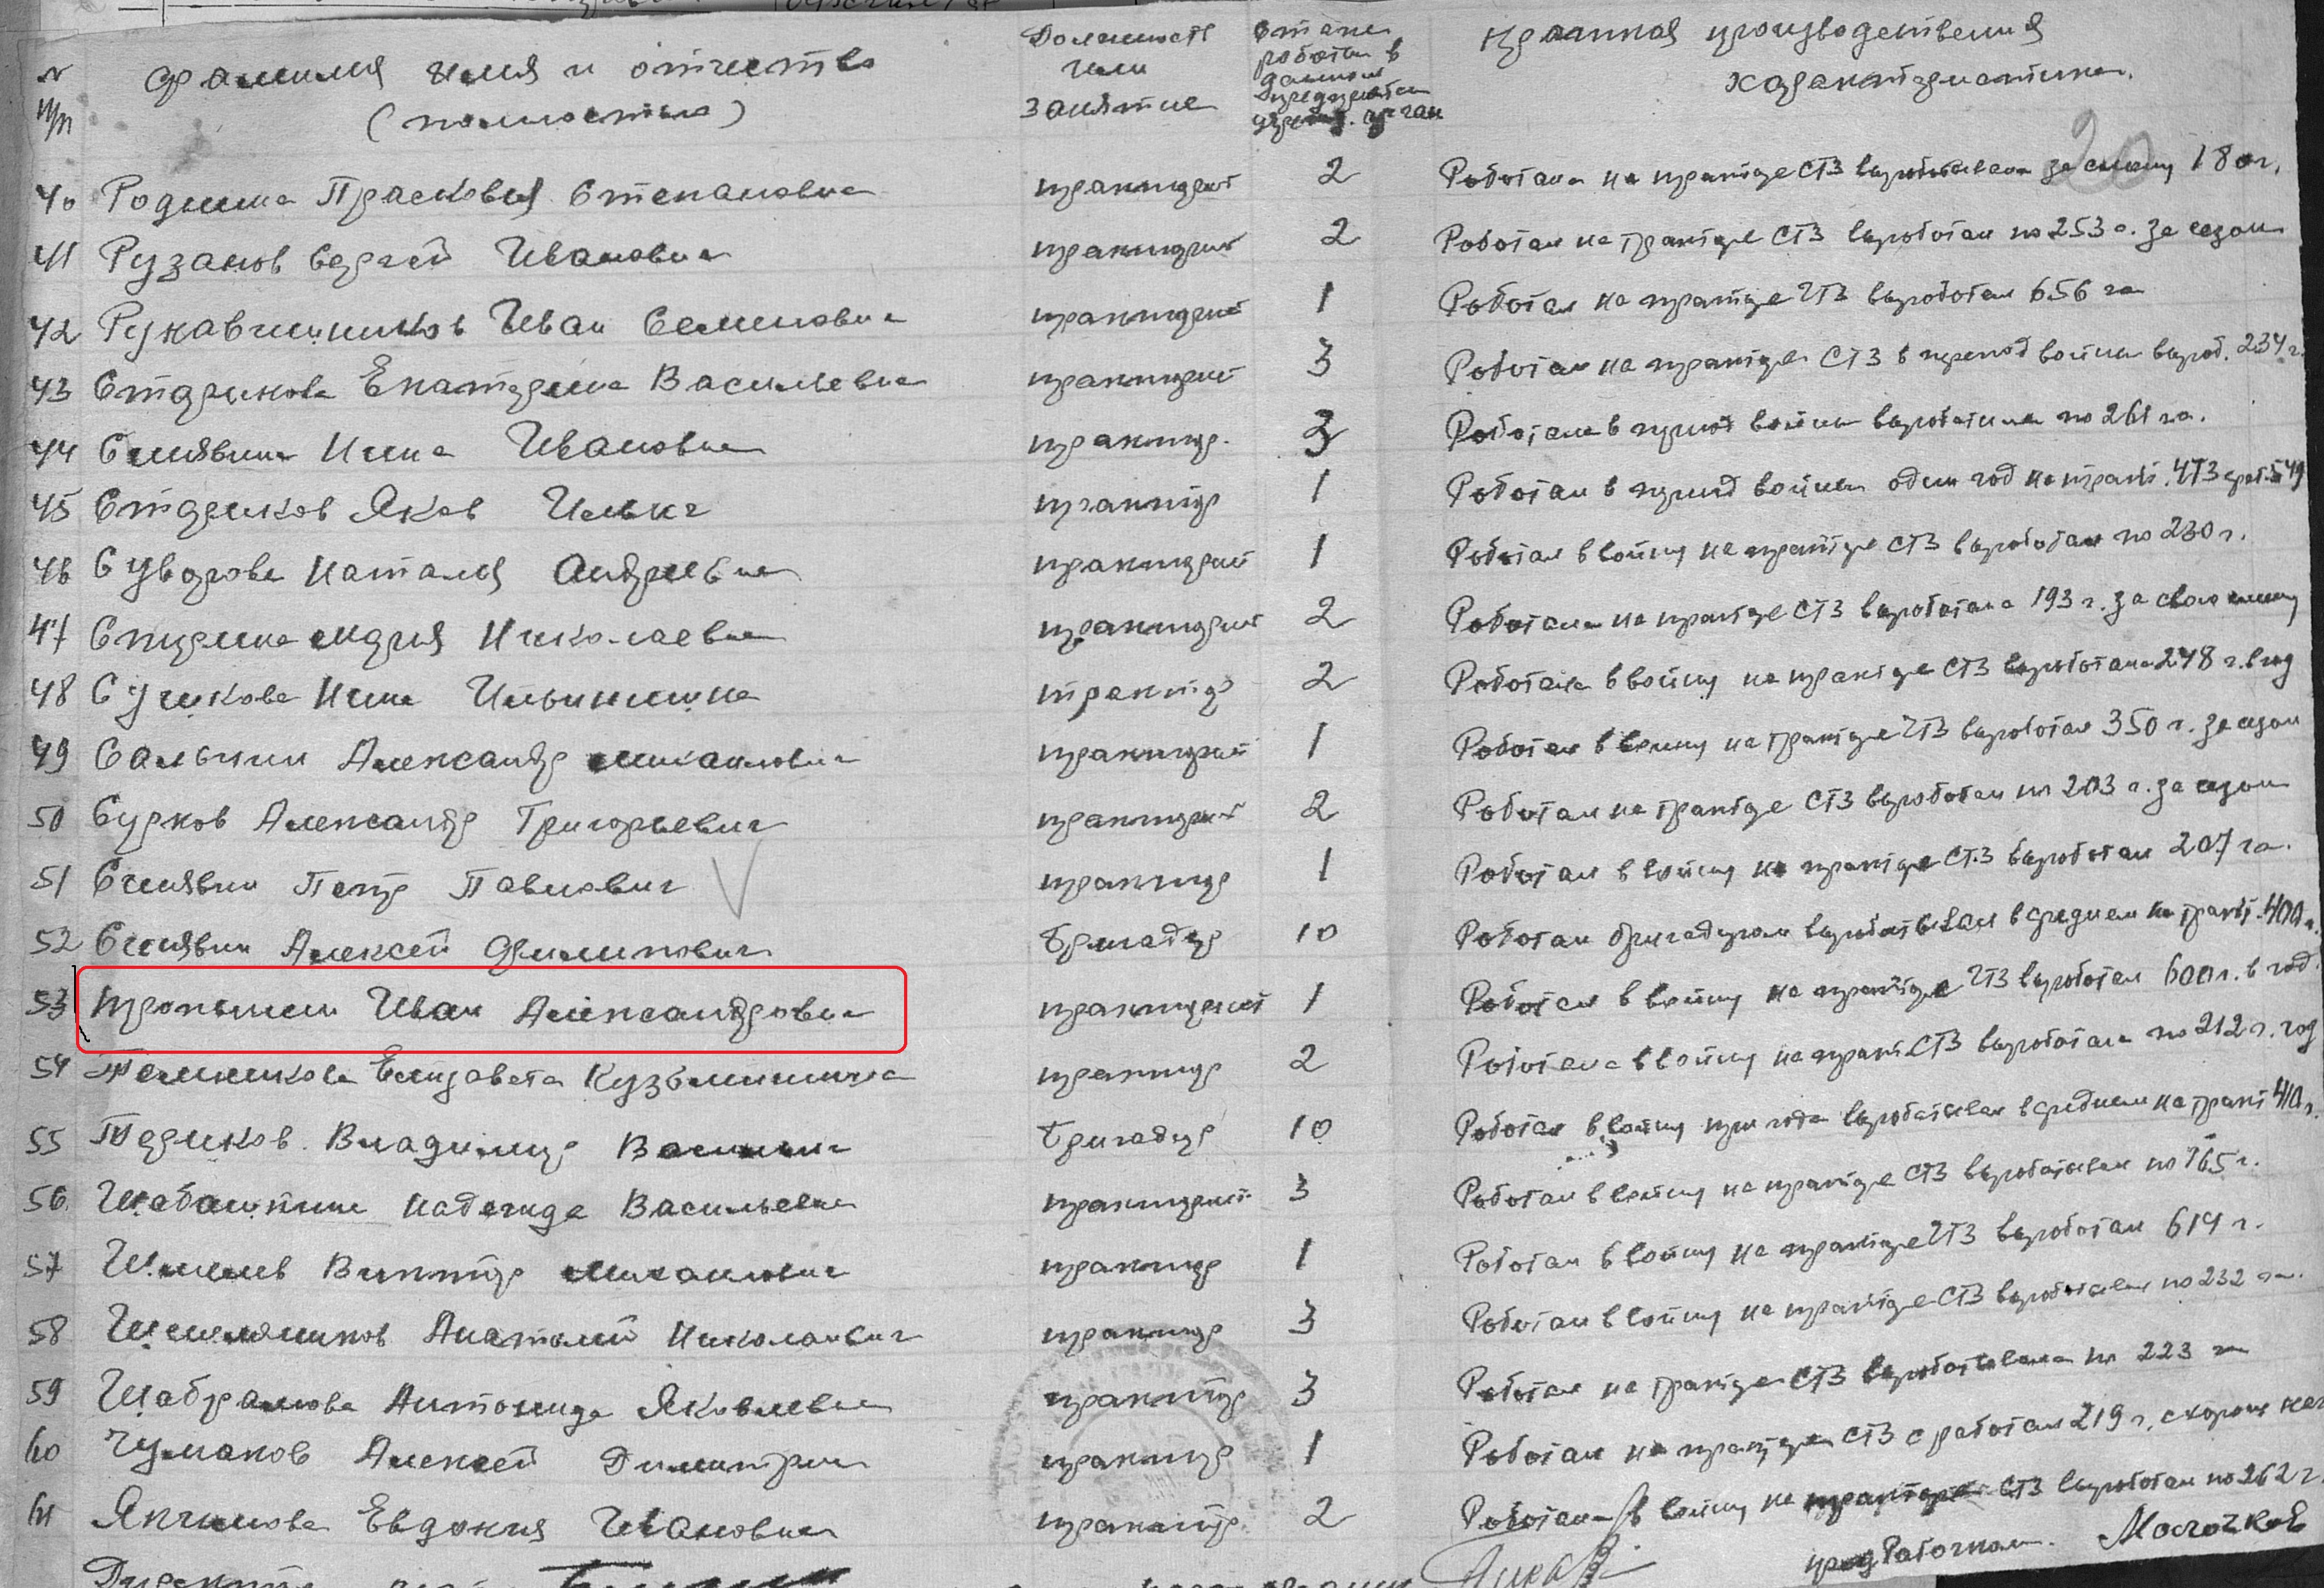 № п/п Фамилия имя и отчество (полностью) Должность или занятие Стаж работы в данном Краткая производственная характеристика.
40 Родина Прасковья Степановна тракторист 2 Работала на тракторе СТЗ вырабатывала за смену 180 г.
41 Рузанов Сергей Иванович тракторист 2 Работал на тракторе СТЗ выработал по 253 г. за сезон
42 Рукавишников Иван Семенович тракторист 1 Работал на тракторе ЧТЗ выработал 656 га
43 Старикова Екатерина Васильевна тракторист 3 Работал на тракторе СТЗ в период войны выраб. 234 г.
44 Синявина Нина Ивановна трактор. 3 Работала в период войны выработала по 261 га.
45 Стариков Яков Ильич трактор 1 Работал в период войны один год на тракт. ЧТЗ
46 Суворова Наталья Андреевна тракторист 1 Работал в войну на тракторе СТЗ выработал по 230 г.
47 Спирина Мария Николаевна тракторист 2 Работала на тракторе СТЗ выработала 193 г. за свою смену
48 Сушкова Нина Ильинишна трактор 2 Работала в войну на тракторе СТЗ выработала 248 г. в год
49 Салынин Александр Михайлович тракторист 1 Работал в войну на тракторе ЧТЗ выработал 350 г. за сезон
50 Сурков Александр Григорьевич тракторист 2 Работал на тракторе СТЗ выработал по 203 г. за сезон
51 Синявин Петр Павлович трактор 1 Работал в войну на тракторе СТЗ выработал 207 га.
52 Синявин Алексей Филиппович Бригадир 10 Работал бригадиром вырабатывал в среднем на тракт. 400 г.
53 Тронышин Иван Александрович тракторист 1 Работал в войну на тракторе ЧТЗ выработал 600 г. в год
54 Темникова Елизавета Кузьминишна трактор 2 Работала в войну на тракт. СТЗ выработала по 212 г. год
55 Териков Владимир Васильич Бригадир 10 Работал в войну три года вырабатывал в среднем на тракт 410 г.
56 Шабашкина Надежда Васильевна тракторист 3 Работал в войну на тракторе СТЗ вырабатывал по 165 г.
57 Виктор Михайлович трактор 1 Работал в войну на тракторе ЧТЗ выработал 614 г.
58 Анатолий Николаевич трактор 3 Работал в войну на тракторе СТЗ вырабатывал по 232 га.
59 Шабрамова Антонида Яковлевна трактор 3 Работал на тракторе СТЗ вырабатывала по 223 га
60 Чумаков Алексей Димитрич трактор 1 Работал на тракторе СТЗ сработал 219 г.
61 Япрынцова Евдокия Ивановна трактор. 2 Работала в войну на тракторе СТЗ выработал по 262 г.
пред Рабочком. Молочков